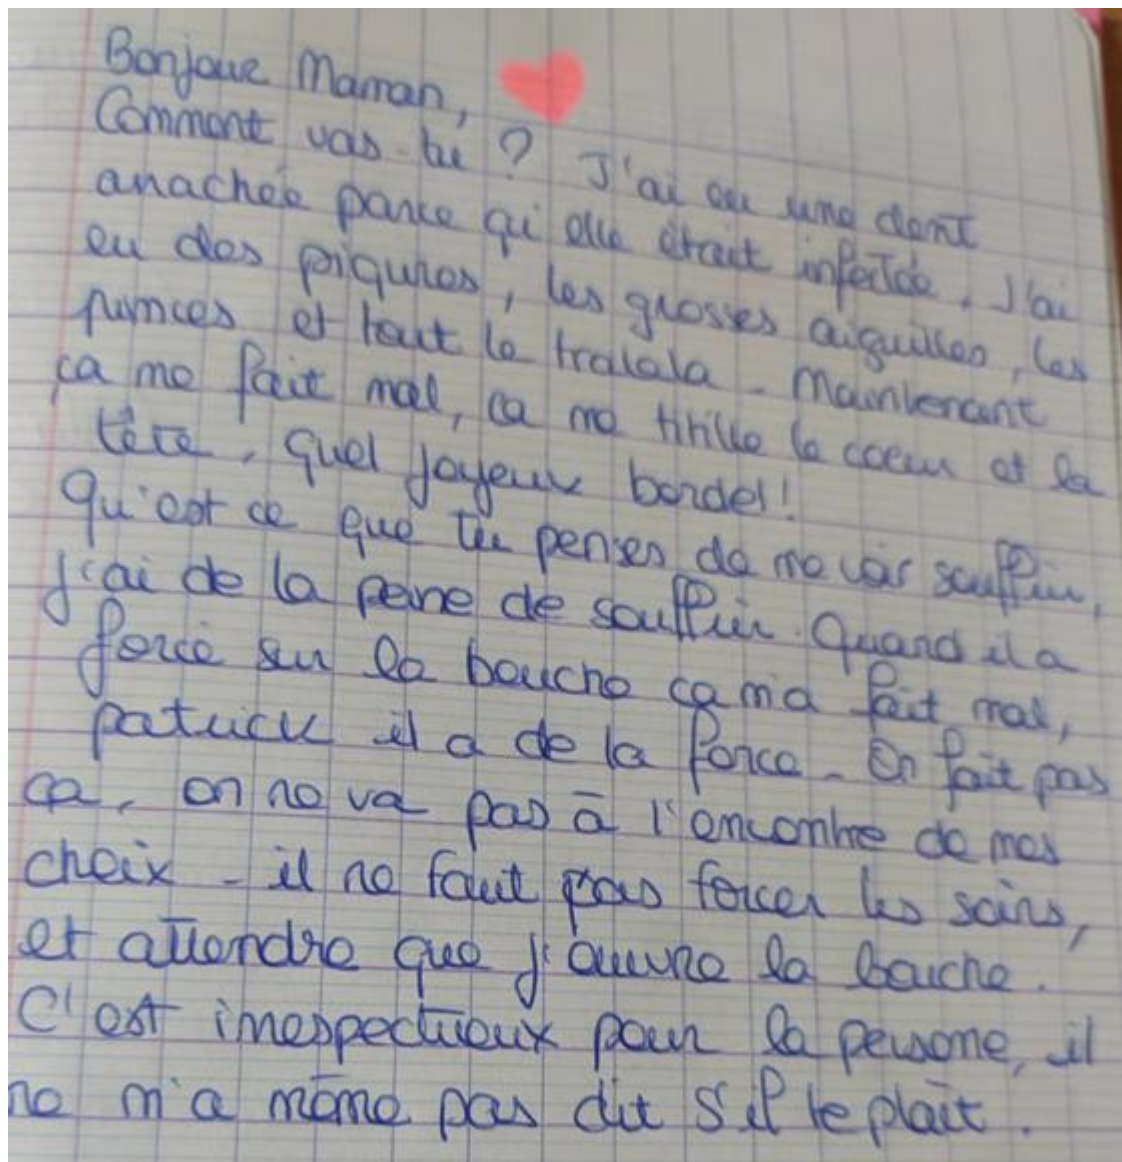 Bonjour Maman,
Comment vas-tu ? J'ai eu une dent
arrachée parce qu'elle était infectée. J'ai
eu des piqures, les grosses aiguilles, les
pinces et tout le tralala. Maintenant
ça me fait mal, ça me titille le coeur et la
tête. Quel joyeux bordel !
Qu'est ce que tu penses de me voir souffrir,
j'ai de la peine de souffrir. Quand il a
forcé sur la bouche ça m'a fait mal,
patrick il a de la force. On fait pas
ça, on ne va pas à l'encontre de mes
choix - il ne faut pas forcer les soins,
et attendre que j'ouvre la bouche.
C'est irrespectueux pour la personne, il
ne m'a même pas dit s'il te plait.